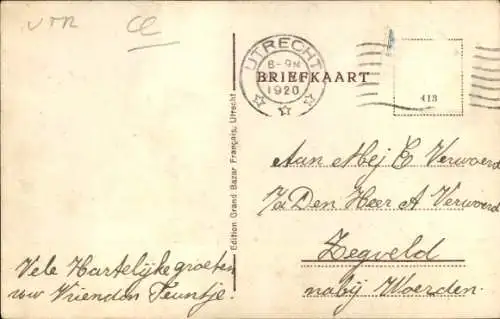 UTR CE
UTRECHT
8-9N
1920
BRIEFKAART
413
Edition Grand Bazar Français, Utrecht
Aan Mej C Verwoerd
p/a Den Heer A Verwoerd
Zegveld
nabij Woerden.
Vele Hartelijke groeten
uw Vrienden Teuntje.